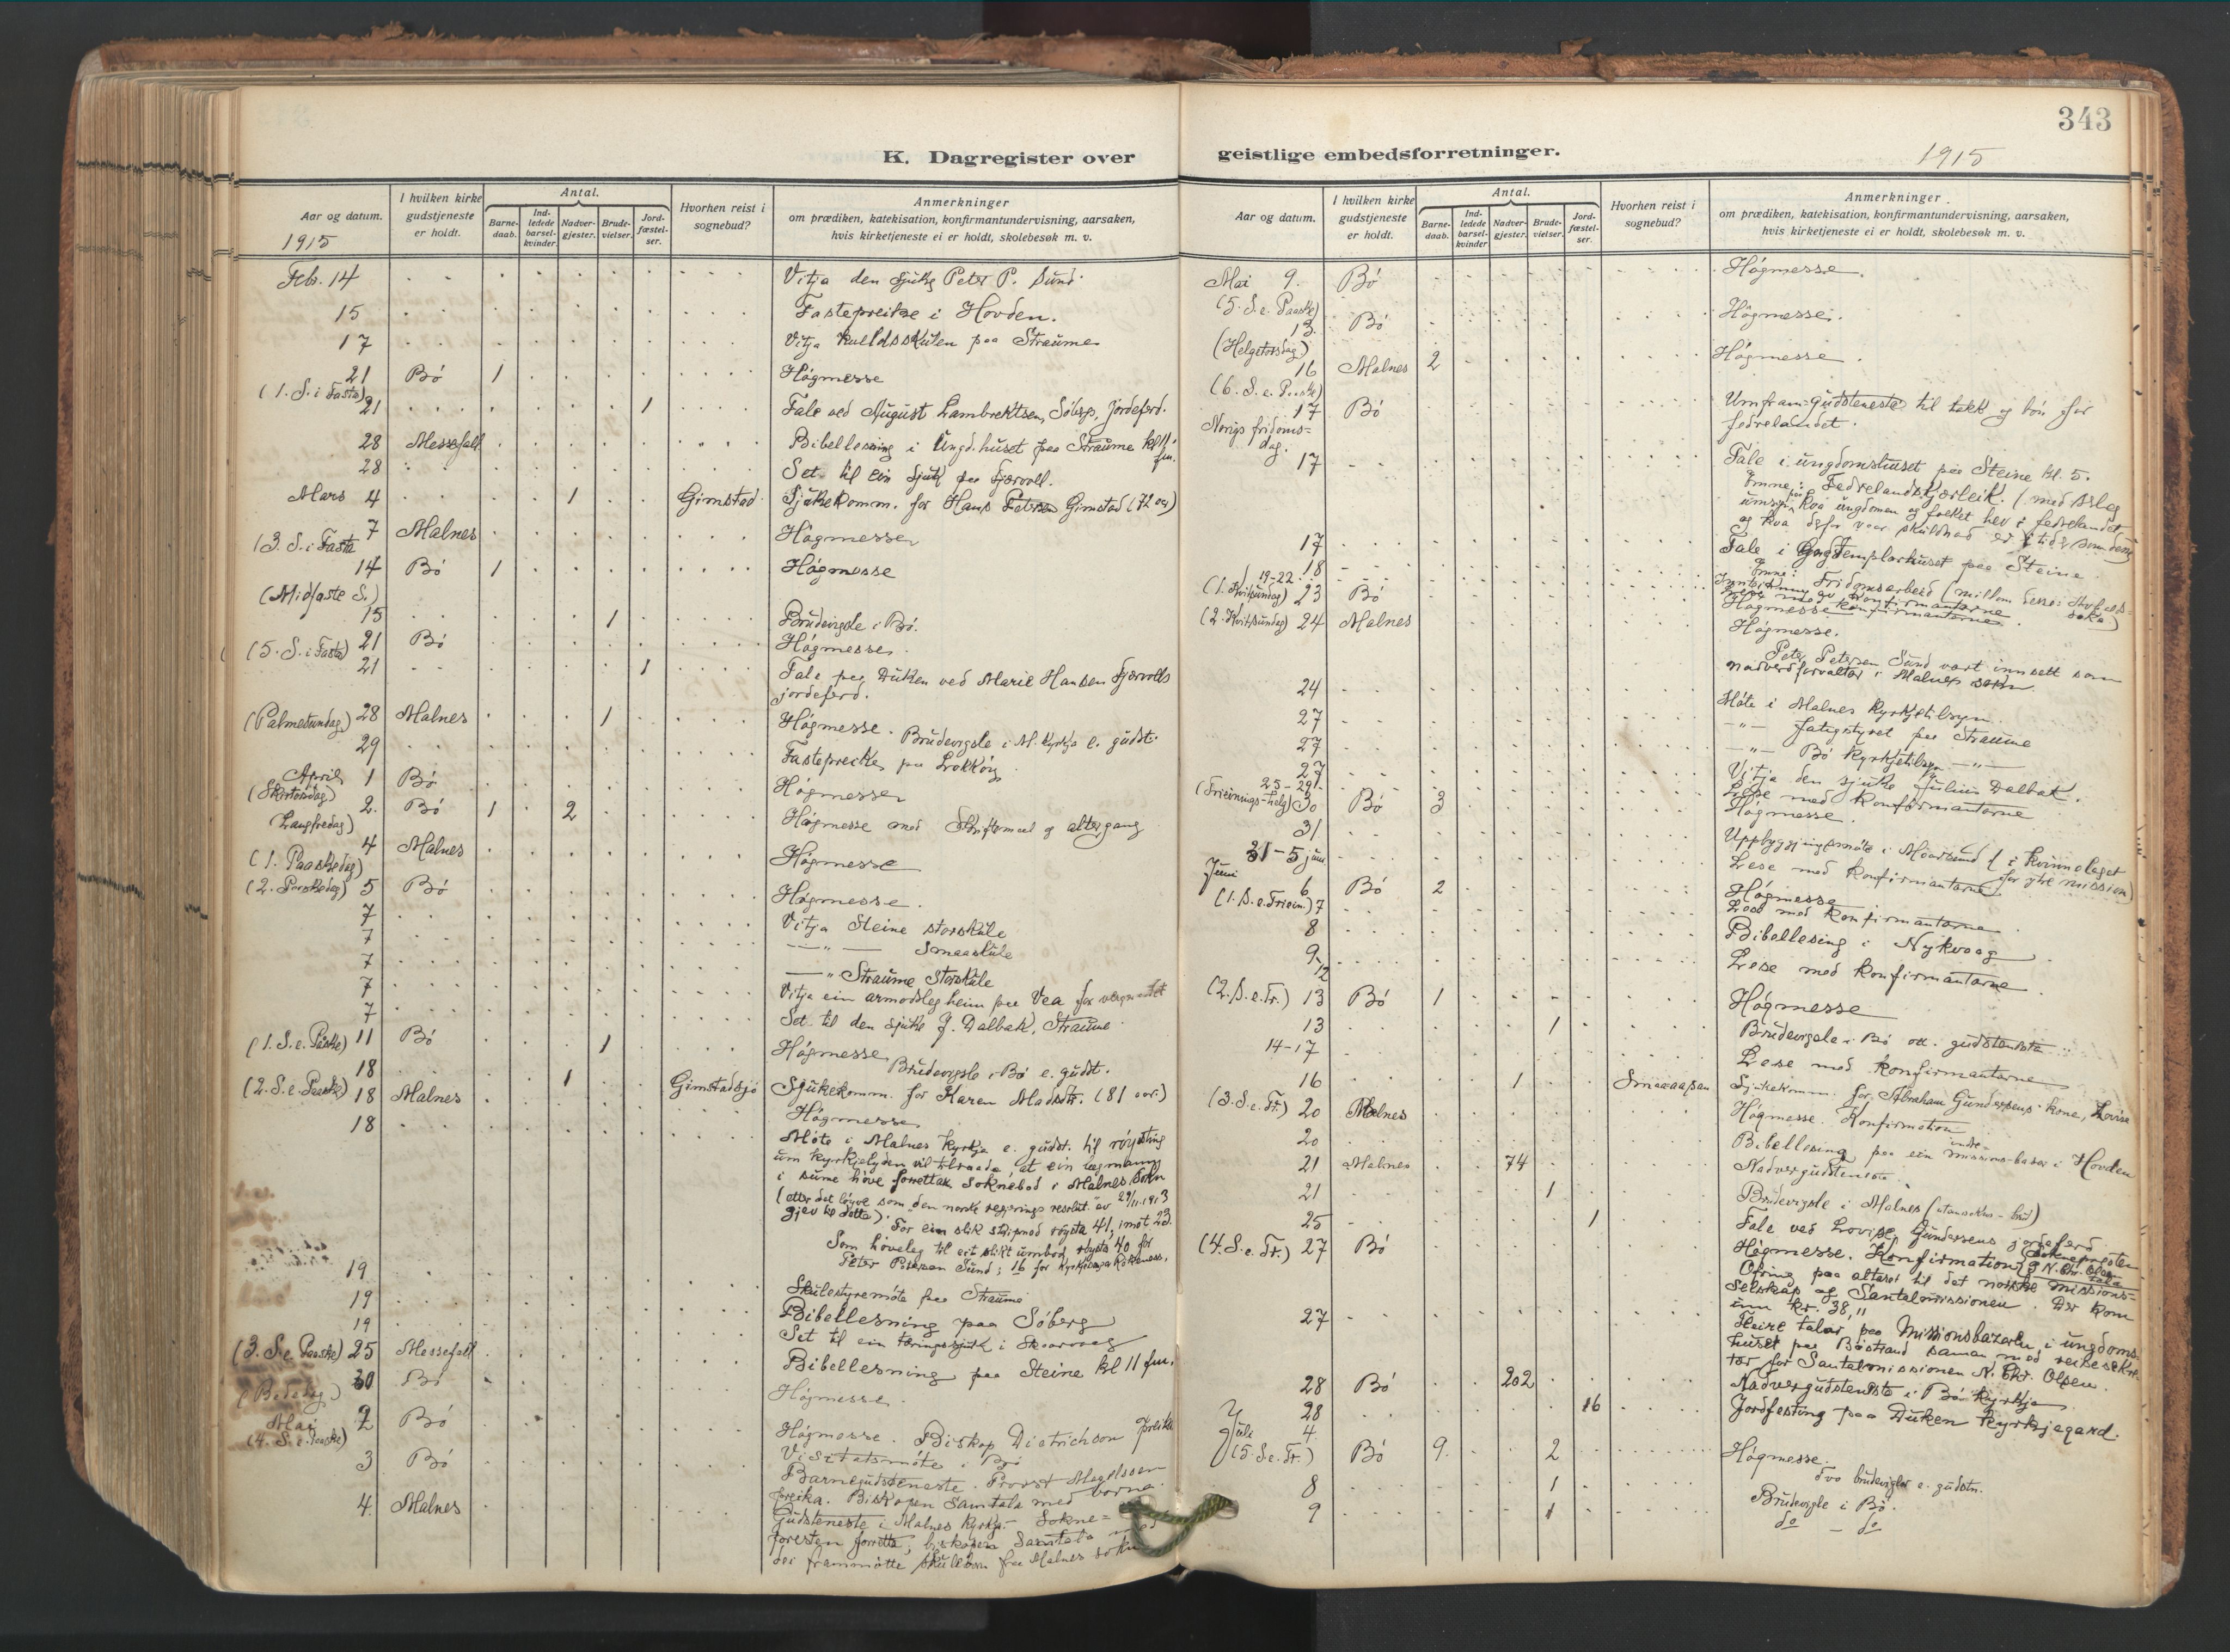 343
K. Dagregister over
geistlige embedsforretninger.
1915
Aar og datum.
1915
I hvilken kirke
gudstjeneste
er holdt.
Antal.
Barne-
daab.
Ind-
ledede
barsel-
kvinder.
Nadver-
gjester.
Brude-
vielser.
Jord-
fæstel-
ser.
Hvorhen reist i
sognebud?
Anmerkninger
om prædiken, katekisation, konfirmantundervisning, aarsaken,
hvis kirketjeneste ei er holdt, skolebesøk m. v.
Febr. 14 Vitja den sjuke Peter P. Sund.
15 Fastepreike i Hovden.
17 Vitja kveldsskulen paa Straume
21 Bö 1 Högmesse
(1. S. i Fasta)
21 1 Tale ved August Lambrektsen, Söberg, jordeferd.
28 Messefall Bibellesning i Ungd.huset paa Straume kl 11
fm.
28 Set til ein sjuk paa Fjærvoll.
Mars 4 1 Gimstad Sjukekomm. for Hans Petersen Gimstad (72 aar)
7 Malnes Högmesse
(3. S. i Fasta
14 Bö 1 Högmesse
(Midfaste S.)
15 1 Brudevigsle i Bö.
(5. S. i Fasta) 21 Bö Högmesse.
21 1 Tale paa Duken ved Marie Hansen Fjærvolls
jordeferd.
(Palmesundag) 28 Malnes 1 Högmesse. Brudevigsle i M. kyrkja e. gudst.
29 Fastepreike paa
April 1 Bö Högmesse
(Skirtorsdag)
2. Bö 1 2 Högmesse med Skriftemaal og altergang
Langfredag)
4 Malnes Högmesse
(1. Paaskedag)
(2. Paaskedag) 5 Bö Högmesse.
7 Vitja Steine storskule
7 —"— Smaaskule
7 —" Straume Storskule
7 Vitja ein armodsleg heim paa Vea for
7 Set til den sjuke J. Dalbak, Straume
(1. S. e. Paaske) 11 Bö 1 Högmesse Brudevigsle i Bö e. gudst.
18 1 Gimstadsjö Sjukekomm. for Karen Madsdtr. (81 aar.)
(2. S. e. Paaske) 18 Malnes Högmesse
18 Möte i Malnes kyrkja e. gudst. til röysting
um kyrkjelyden vil tilraada, at ein legmann
i sume höve forrettar Soknebod i Malnes Sokn
(etter det löyve som den norske regjerings resolut. av 29/11. 1913
gjev til dette). For ein slik skipnad röysta 41, imot 23.
Som höveleg til eit slikt umbod röysta 40 for
Peter Petersen Sund; 16 for kyrkjesongar
19 Skulestyremöte paa Straume
19 Bibellesning paa Söberg
19 Set til ein tæringssjuk i Skaarvaag
(3. S. e. Paaske) 25 Messefall Bibellesning paa Steine kl 11 fm.
30 Bö Högmesse.
(Bededag)
Mai 2 Bö Högmesse. Biskop Dietrichson preika
(4. S. e. Paaske)
3 Bö Visitatsmöte i Bö
Barnegudsteneste. Provst
preika. Biskopen samtala med borna.
4. Malnes Gudsteneste i Malnes kyrkja. Sokne=
presten forretta; biskopen samtala med
dei frammötte skuleborn fraa Malnes sokn
Aar og datum.
I hvilken kirke
gudstjeneste
er holdt.
Antal.
Barne-
daab.
Ind-
ledede
barsel-
kvinder
Nadver-
gjester.
Brude-
vielser.
Jord-
fæstel-
ser.
Hvorhen reist i
sognebud?
Anmerkninger.
om prædiken, katekisation, konfirmantundervisning, aarsaken,
hvis kirketjeneste ei er holdt, skolebesøk m. v.
Mai 9. Bö Högmesse.
(5. S. e. Paaske)
13. Bö Högmesse.
(Helgetorsdag)
16 Malnes 2 Högmesse.
(6. S. e. Paaske)
17 Bö Umframgudsteneste til takk og bön for
Norigs fridoms= fedrelandet.
dag.
17 Tale i ungdomshuset paa Steine kl. 5.
Emne: Fedrelandskjærleik. (med serleg
umsyn paa kva ungdomen og folket hev i fedrelandet
og kva derfor vaar skuldnad er i tider som desse
17 Tale i Godtemplarhuset paa Steine
Emne: Fridomsarbeid (millom desse:
soka)
18 Innskriving av konfirmantarne
19-22. Lese med konfirmantarne
(1. Kvitsundag) 23 Bö Högmesse
(2. Kvitsundag) 24 Malnes Högmesse.
Peter Petersen Sund vart innsett som
nadverdforvaltar i Malnes sokn
24 Möte i Malnes kyrkjetilsyn.
27 —"— fatigstyret paa Straume
27 —"— Bö kyrkjetilsyn —"—
27 Vitja den sjuke Julius Dalbak.
25-29. Lese med konfirmantarne
(Trieinings-helg) 30 Bö 3 Högmesse.
31 Uppbyggjingsmöte i Maarsund (i kvinnelaget
for ytre mission)
31-5 juni Lese med konfirmantarne
Juni 6 Bö 2 Högmesse
(1. S. e. Triein.) 7 Lese med konfirmantarne
8 Bibellesing i Nykvaag
9-12 Lese med konfirmantarne
(2. S. e. Tr.) 13 Bö 1 Högmesse
13 1 Brudevigsle i Bö ett. gudstenesta
14-17 Lese med konfirmantarne
16 1 Sjukekomm. for Abraham Gundersens kone, Lovise
(3. S. e. Tr.) 20 Malnes Högmesse. Konfirmation
20 Bibellesing paa ein indre- missions-basar i Hovden
21 Malnes 74 Nadvergudsteneste.
21 1 Brudevigsle i Malnes (utansokns-brud)
25 1 Tale ved Lovise Gundersens jordeferd
(4. S. e. Tr.) 27 Bö Högmesse. Konfirmation Soknepresten
og N. Chr. Olsen tala
Ofring paa altaret til det norske missions=
selskap og Santalmissionen. Der kom
inn kr. 38,"
27 Fleire talar paa Missionsbazaren i ungdoms
huset paa Böstrand saman med reisesekre
tær for Santalmissionen N. Chr. Olsen.
28 Bö 202 Nadvergudsteneste i Bö kyrkja
28 16 Jordfesting paa Duken kyrkjegard.
Juli 4.
(5. S. e. Tr.) Bö 9. 2 Högmesse.
Tvo brudevigslor e. gudstn.
8 1 Brudevigsle i Bö.
9 1 do – do